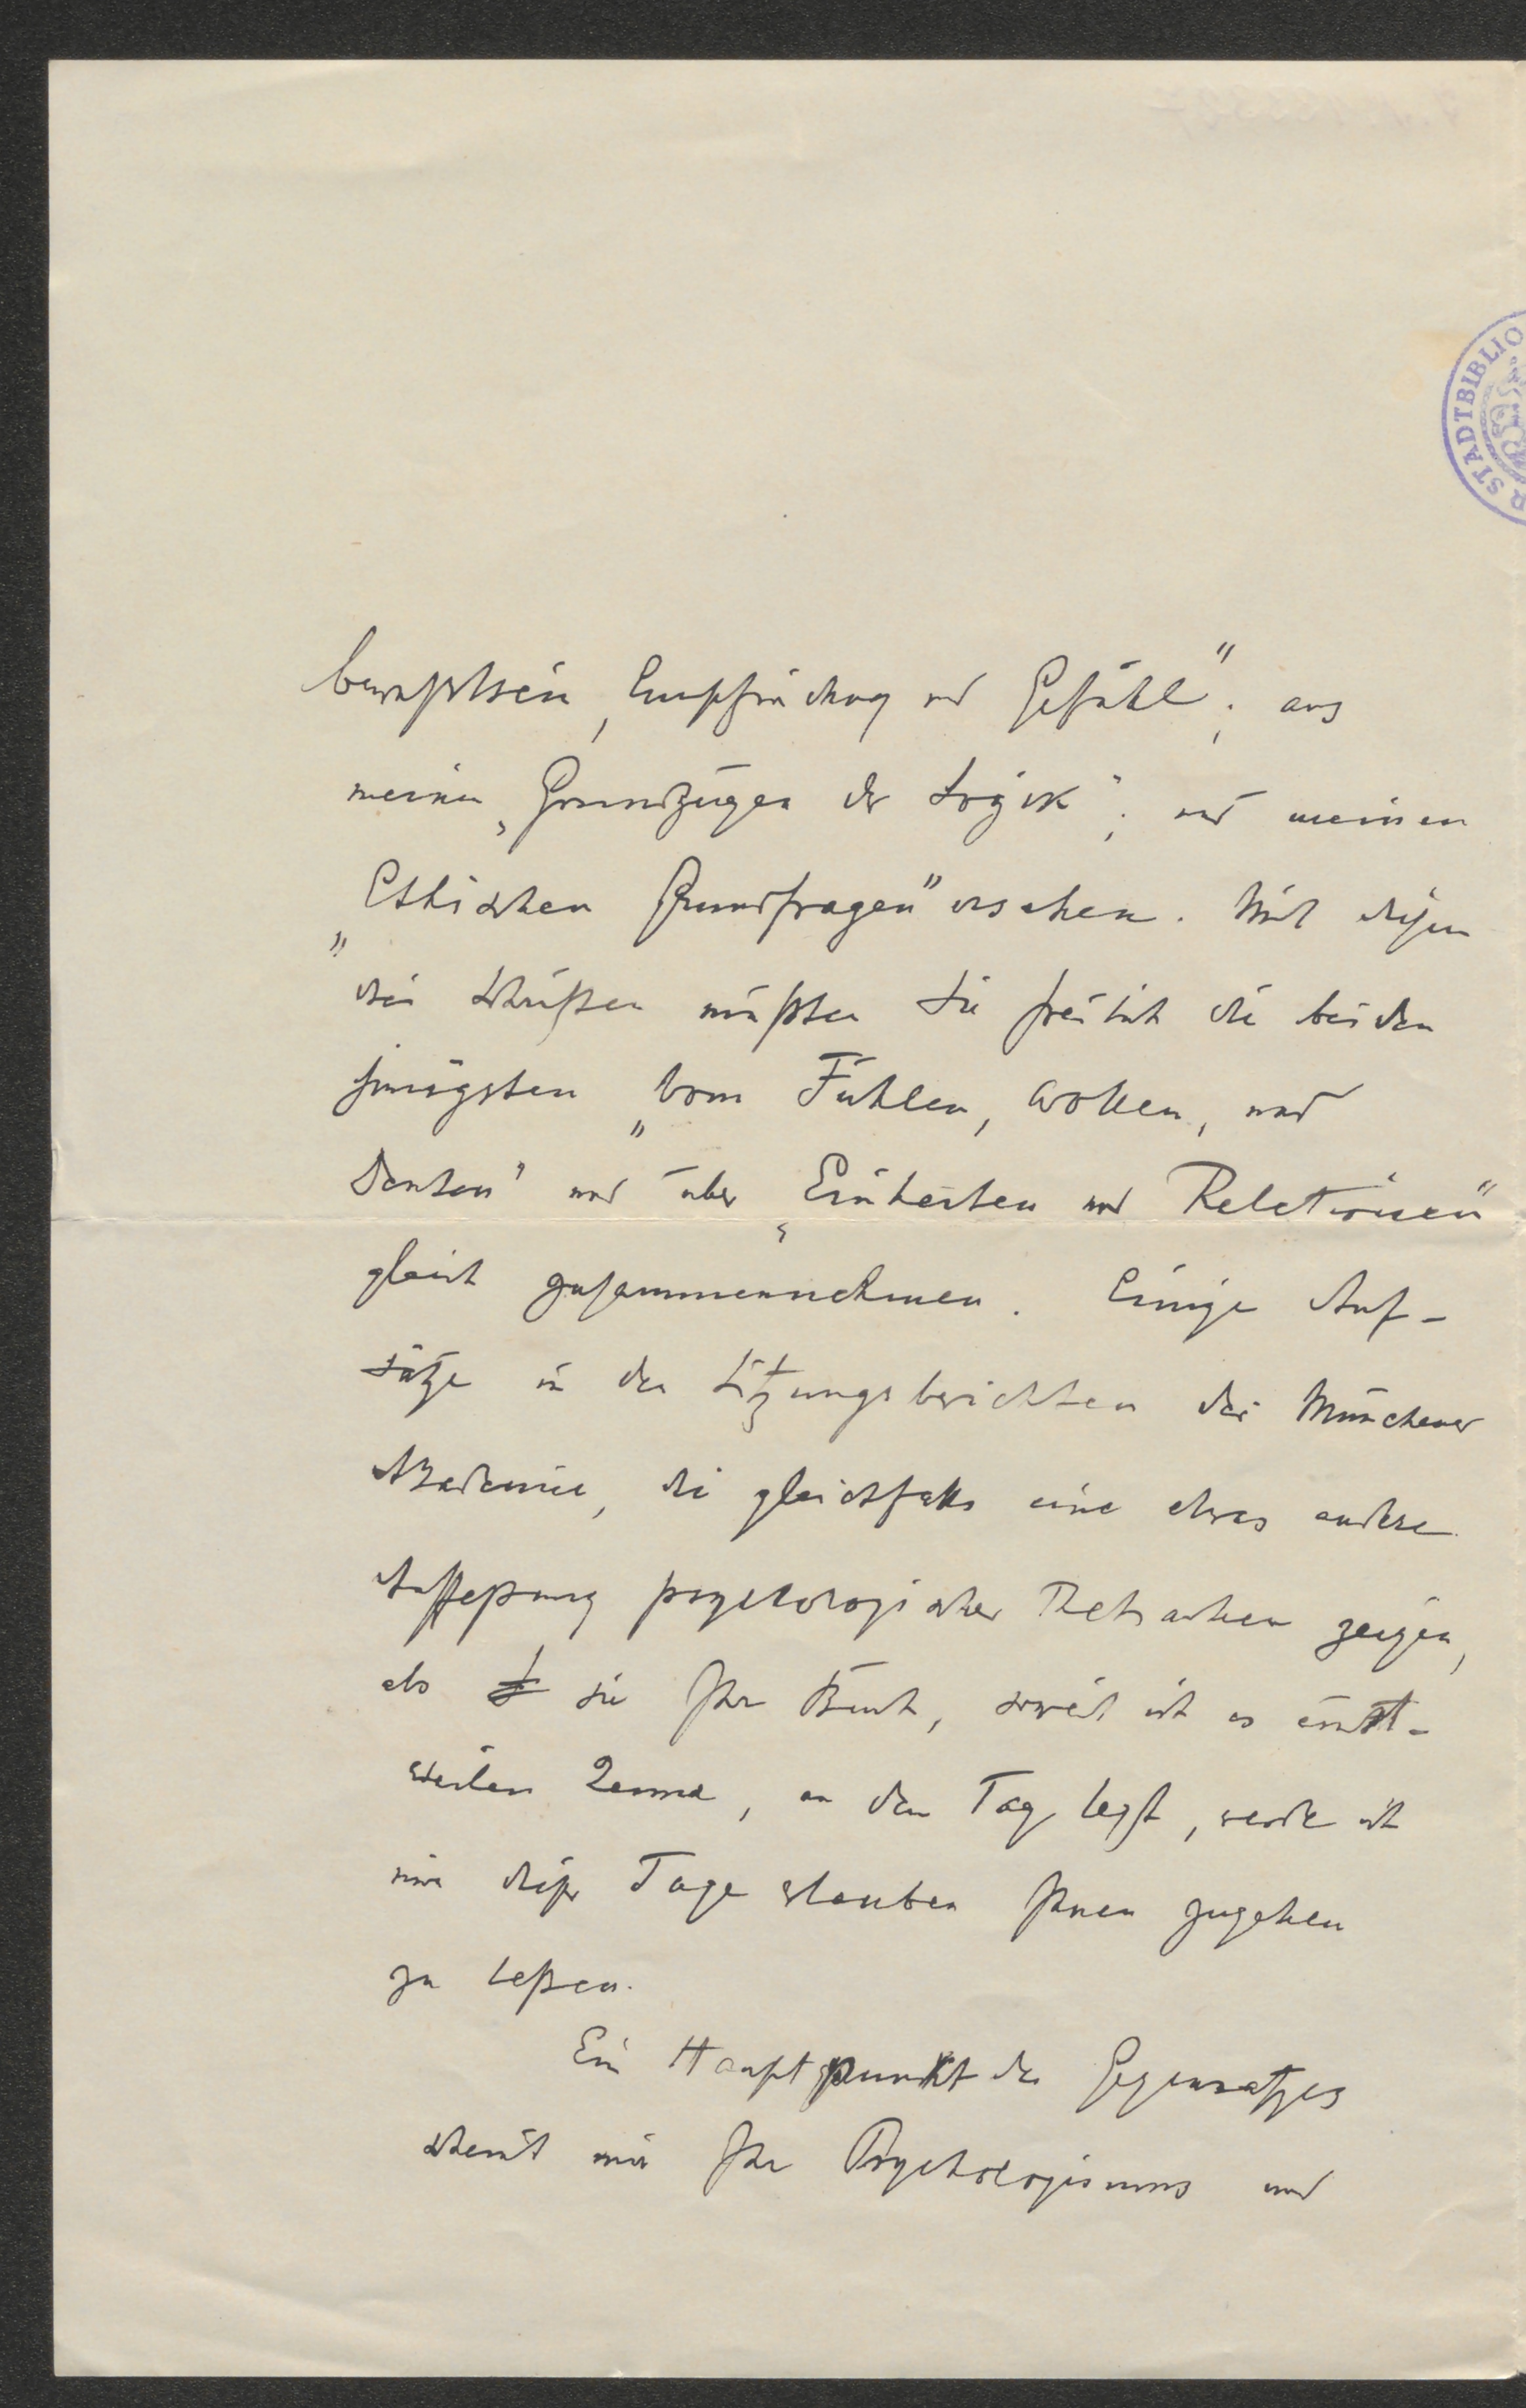 STADTBIBLIO
bewußtsein, Empfindung und Gefühl"; aus
meinen „Grundzügen der Logik"; und meinen
„Ethischen Grundfragen" ersehen. Mit diesen
drei Schriften müßten Sie freilich die beiden
jüngsten „Vom Fühlen, Wollen, und
Denken" und über „Einheiten und Relationen"
gleich zusammennehmen. Einige Auf-
sätze in den Sitzungsberichten der Münchener
Akademie, die gleichfalls eine etwas andere
Auffaßung psychologischer Thatsachen zeigen,
als sie Ihr Buch, soweit ich es einst-
weilen kenne, an den Tag legt, werde ich
mir dieser Tage erlauben Ihnen zugehen
zu laßen.
Ein Hauptpunkt des Gegensatzes
scheint mir Ihr Psychologismus und